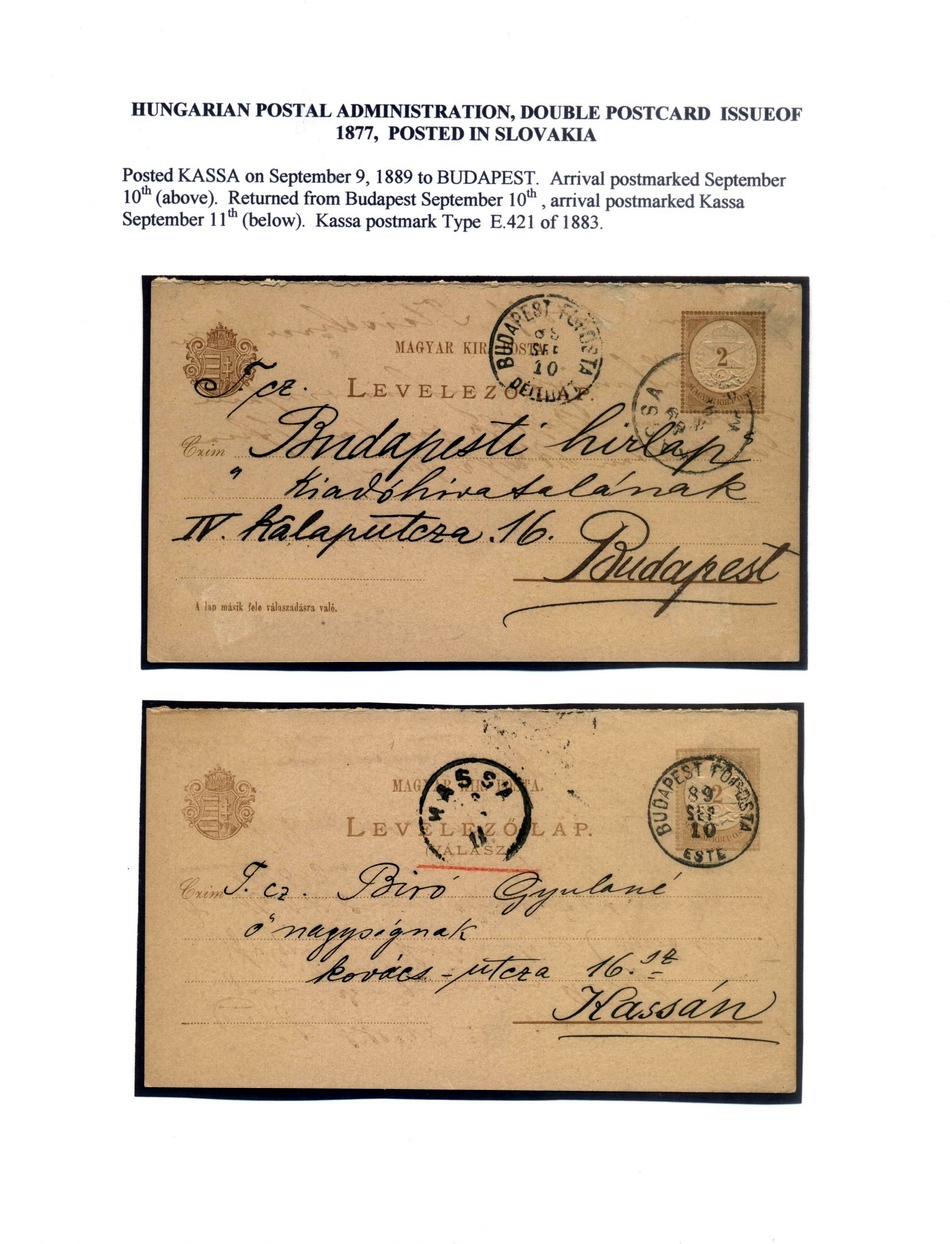 HUNGARIAN POSTAL ADMINISTRATION, DOUBLE POSTCARD ISSUEOF
1877, POSTED IN SLOVAKIA
Posted KASSA on September 9, 1889 to BUDAPEST. Arrival postmarked September
10th (above). Returned from Budapest September 10th , arrival postmarked Kassa
September 11th (below). Kassa postmark Type E.421 of 1883.
BUDAPEST FŐPOSTA
SEP
10
2
MAGYAR KIR. POSTA.
LEVELEZŐ LAP.
KASSA
T. cz.
Czim Budapesti hirlap
" Kiadóhivatalának
IV. Kalaputcza. 16.
Budapest
A lap másik fele válaszadásra való.
MAGYAR KIR. POSTA.
KASSA
11
LEVELEZŐ LAP.
(VÁLASZ)
2
BUDAPEST FŐPOSTA
89
SEP
10
ESTE
Czim T. cz. Biró Gyuláné
ő nagyságnak
kovács-utcza 16. sz
Kassán